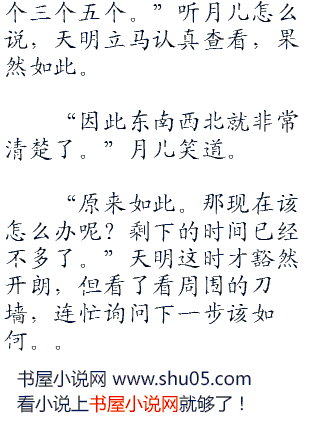 个三个五个。”听月儿怎么
说，天明立马认真查看，果
然如此。
“因此东南西北就非常
清楚了。”月儿笑道。
“原来如此。那现在该
怎么办呢？剩下的时间已经
不多了。”天明这时才豁然
开朗，但看了看周围的刀
墙，连忙询问下一步该如
何。。
书屋小说网 www.shu05.com
看小说上书屋小说网就够了！